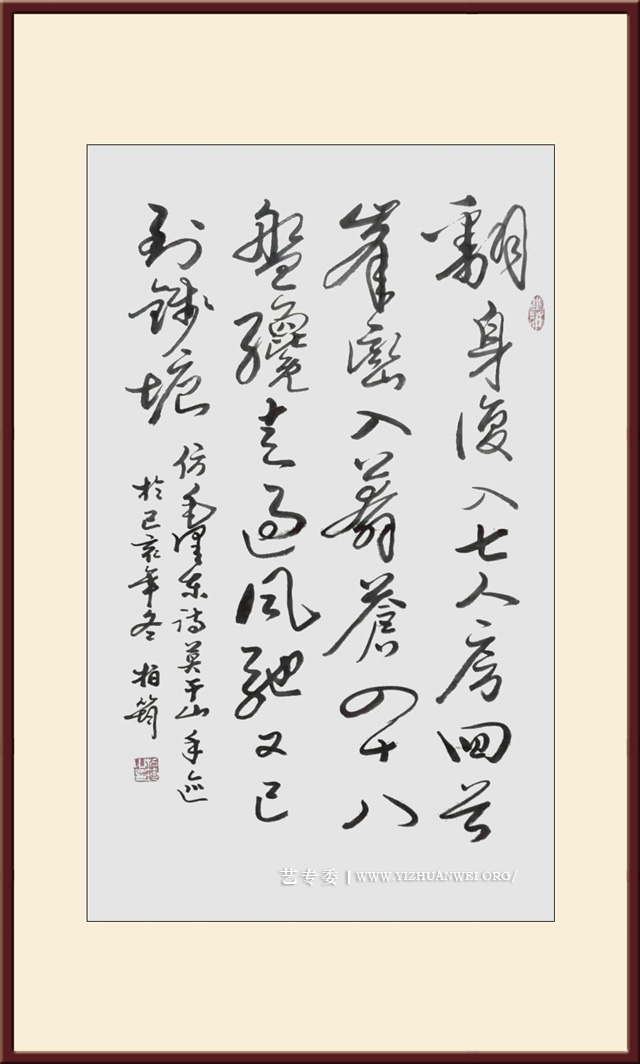 翻身復入七人房囬首
峯巒入莽蒼四十八
盤纔走過風馳又已
到錢塘
仿毛澤東詩莫干山手迹
於己亥年冬 柏筠
艺专委 | WWW.YIZHUANWEI.ORG/